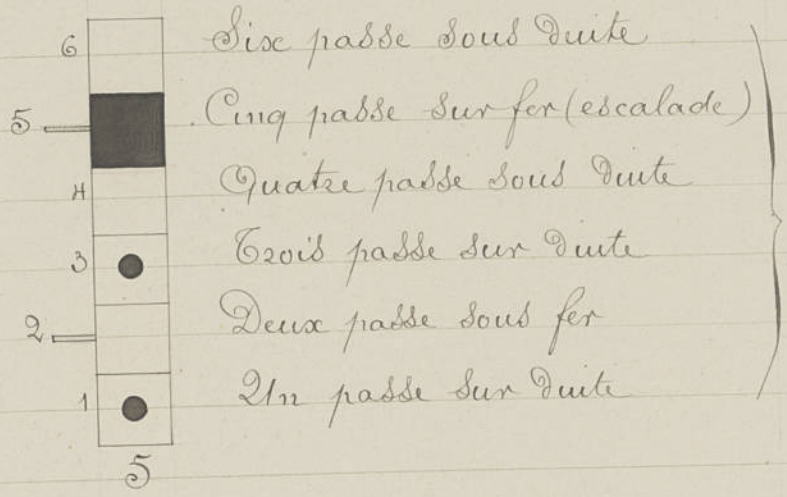 6 Six passe sous duite
5 Cinq passe sur fer (escalade)
4 Quatre passe sous duite
3 Trois passe sur duite
2 Deux passe sous fer
1 Un passe sur duite
5